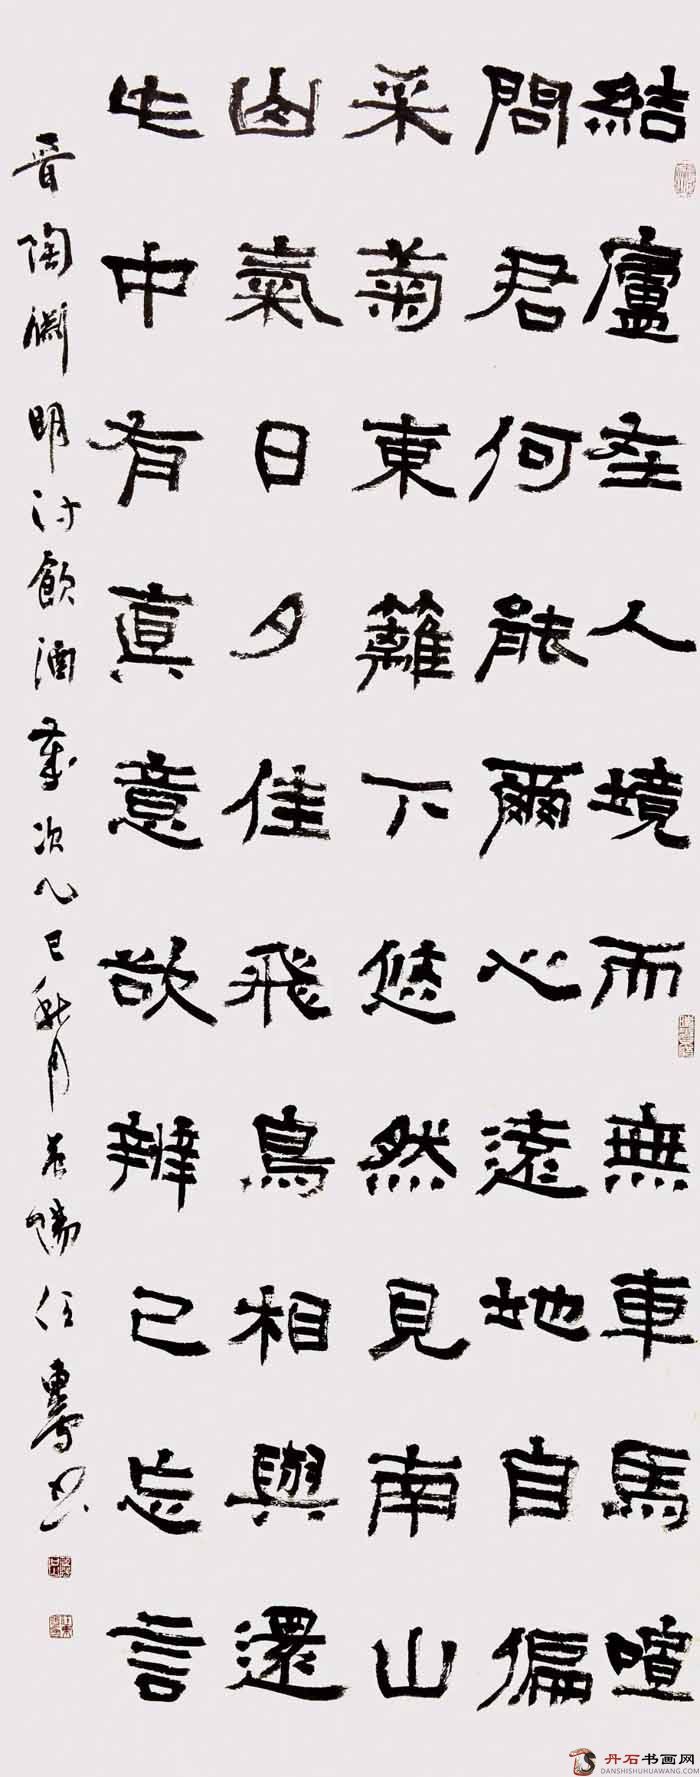 結廬在人境而無車馬喧
問君何能爾心遠地自偏
采菊東籬下悠然見南山
山氣日夕佳飛鳥相與還
此中有真意欲辨已忘言
晉陶淵明詩飲酒歲次乙巳秋月陽任書
丹石书画网
DANSHISHUHUAWANG.COM